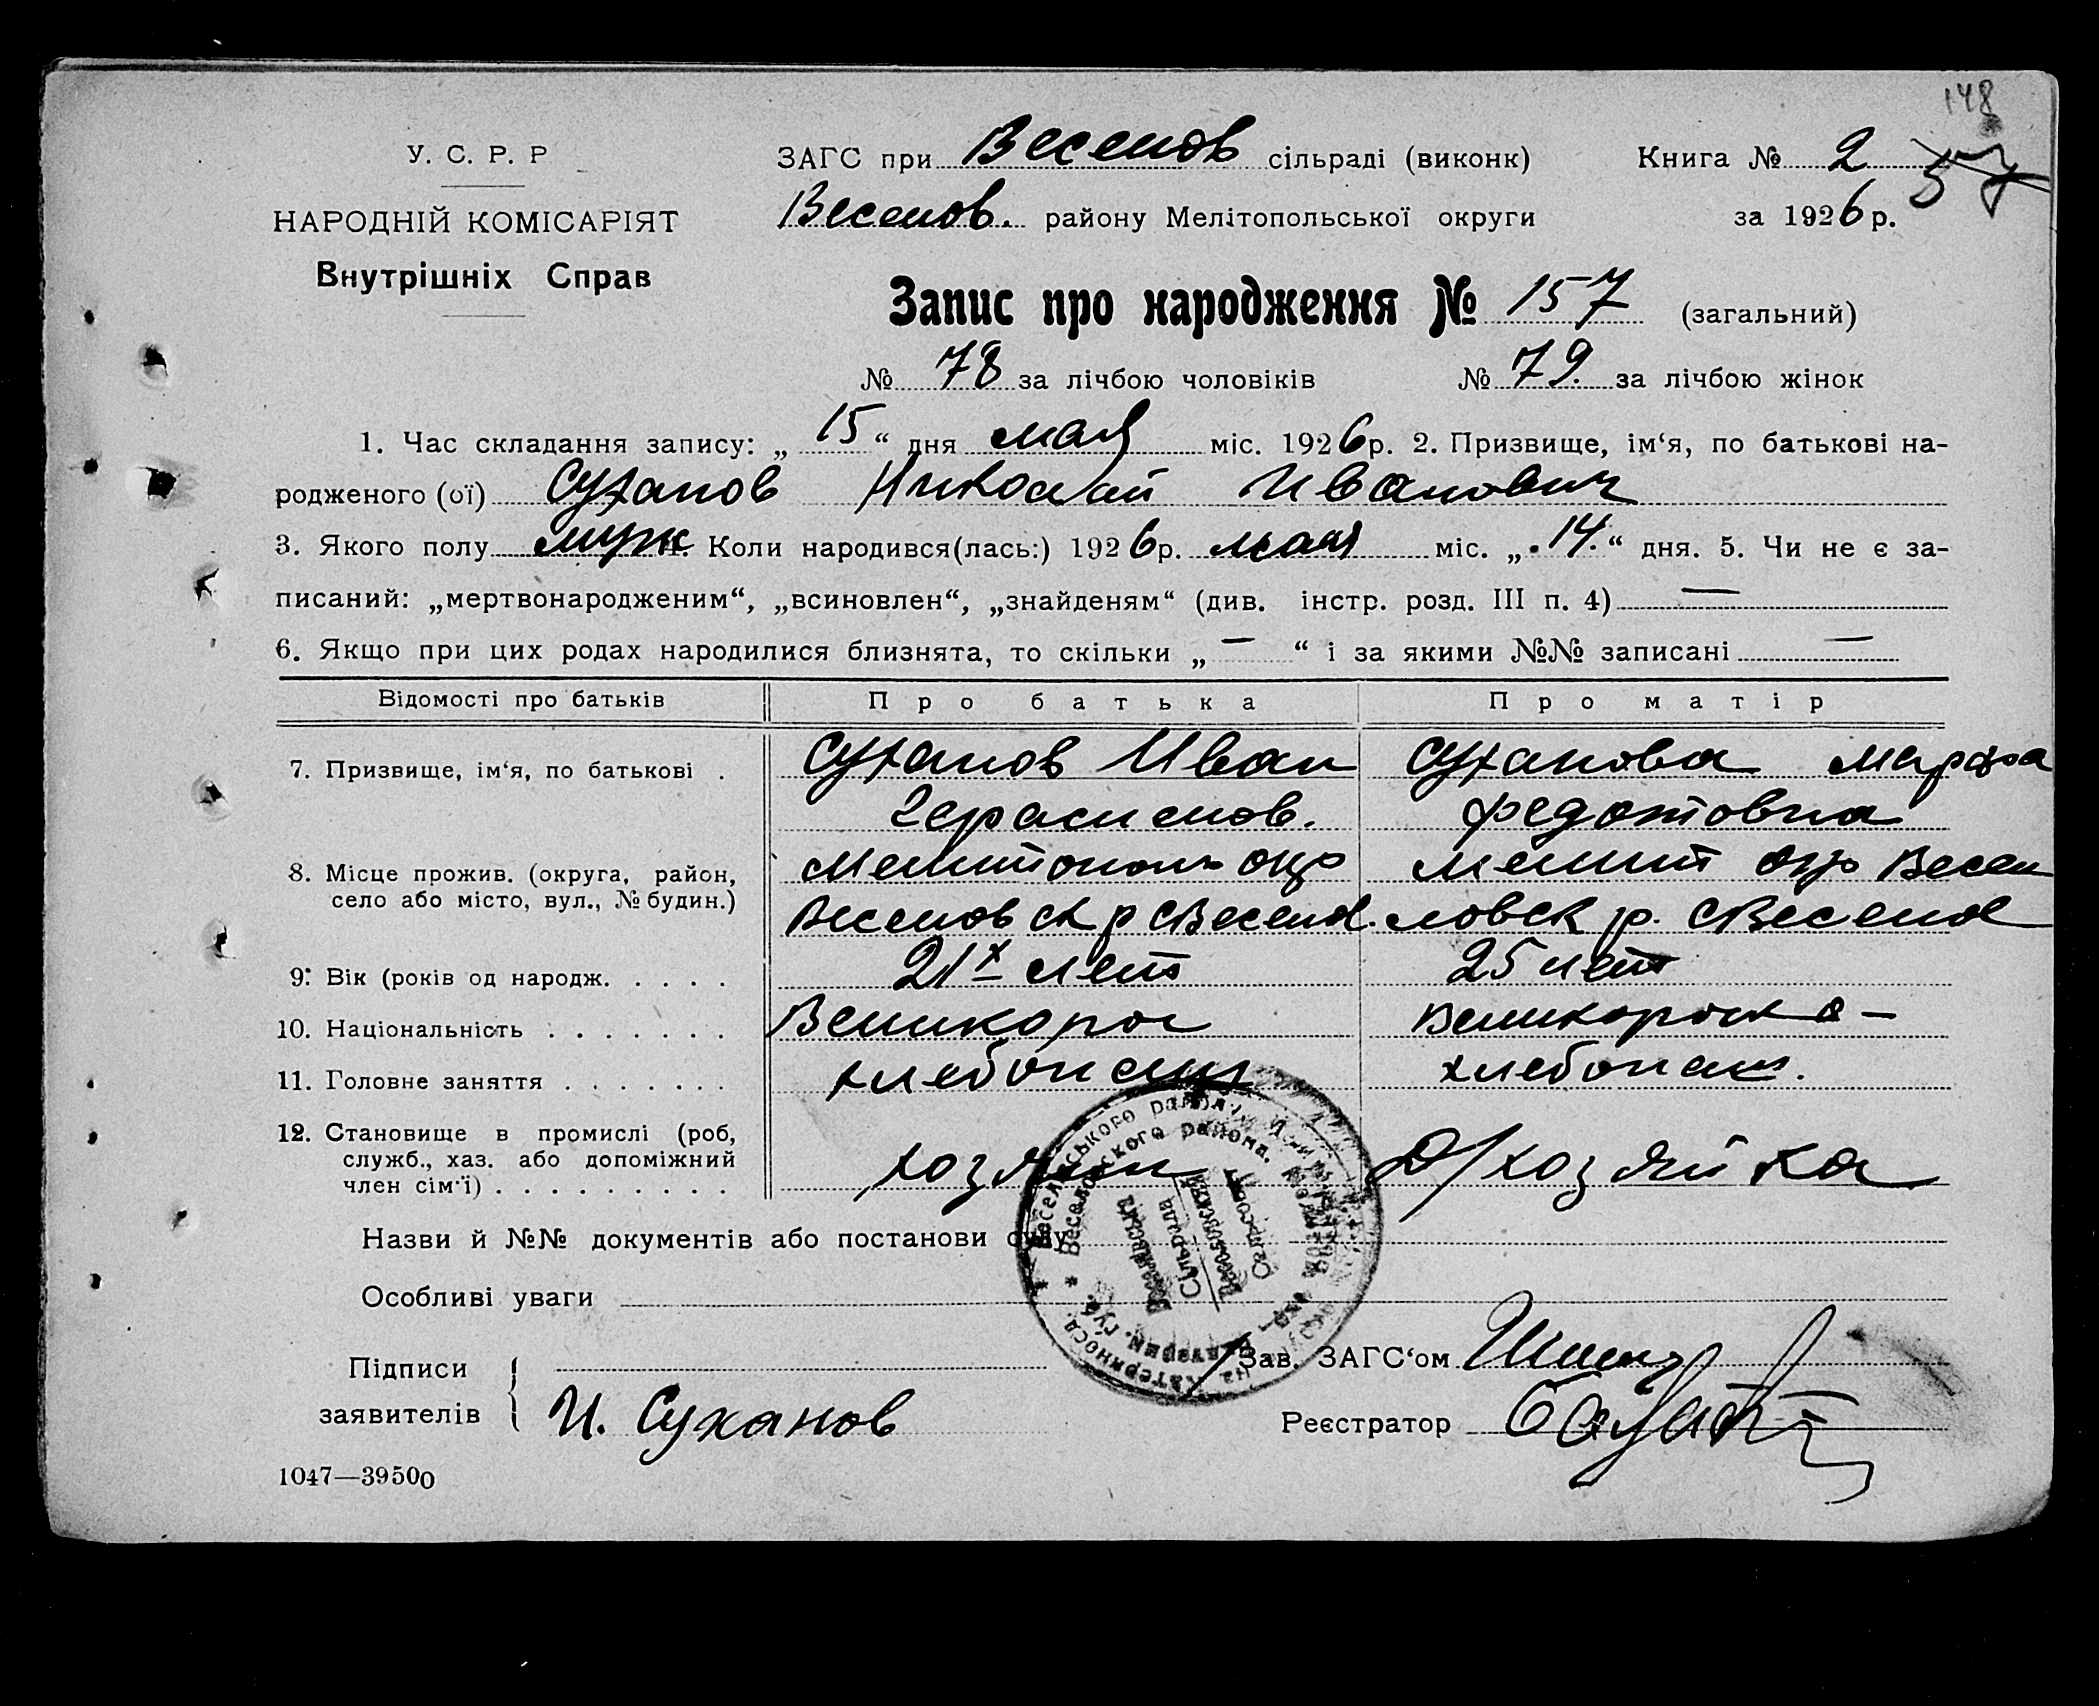 148
У. С. Р. Р
ЗАГС при Веселов сільраді (виконк)
Книга № 2
57
НАРОДНІЙ КОМІСАРІЯТ
Веселов. району Мелітопольської округи
за 1926 р.
Внутрішніх Справ
Запис про народження № 157 (загальний)
№ 78 за лічбою чоловіків № 79. за лічбою жінок
1. Час складання запису: „ 15 “ дня мая міс. 1926 р. 2. Призвище, ім‘я, по батькові на-
родженого (ої) Суханов Николай Иванович
3. Якого полу муж 4. Коли народився(лась:) 1926 р. мая міс. „ 14. “ дня. 5. Чи не є за-
писаний: „мертвонародженим“, „всиновлен“, „знайденям“ (див. інстр. розд. III п. 4) —
6. Якщо при цих родах народилися близнята, то скільки „ — “ і за якими №№ записані —
Відомості про батьків Про батька Про матір
7. Призвище, ім‘я, по батькові . Суханов Иван Суханова Марфа
Герасимов. Федотовна
8. Місце прожив. (округа, район, Мелитополь окр Мелит окр Весел
село або місто, вул., № будин.) Веселовск р с Весел. ловск р. с Весело
9. Вік (років од народж. . . . . 21х лет 25 лет
10. Національність . . . . . . . Великорос Великороска —
11. Головне заняття . . . . . . . хлебопаш хлебопаш.
12. Становище в промислі (роб,
служб., хаз. або допоміжний
член сім‘ї) . . . . . . . . . хозяин Д/хозяйка
Назви й №№ документів або постанови суду
Особливі уваги
Підписи
заявителів
И. Суханов
Зав. ЗАГС‘ом
Реєстратор
1047—39500